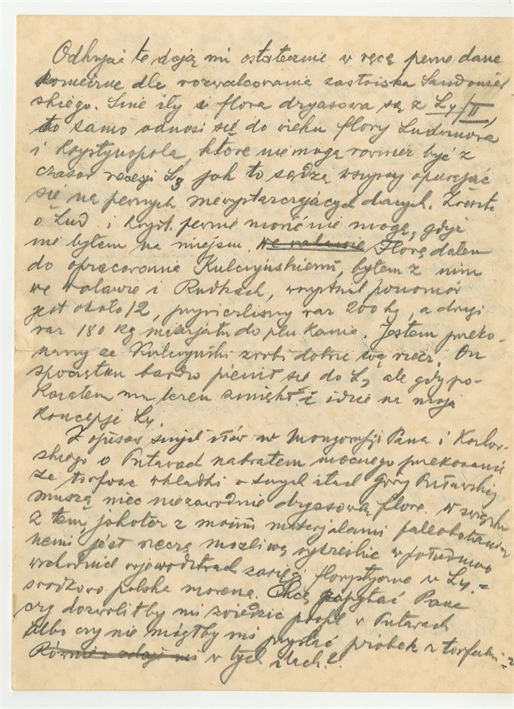 Odkryć te dają mi ostatecznie w ręce pewne dane
konieczne dla rozwalcowania zastoiska Sandomier
skiego. Sine iły z florą dryasową są z L4/II,
to samo odnosi się do wieku flory Ludwinowa
i Krystynopola, które nie mogą również być z
czasów recesji L3 jak to sądzą wszyscy opierając
się na pewnych niewystarczających danych. Zresztą
o Lud i Kryst. pewnie mówić nie mogę, gdyż
nie byłem na miejscu. Florę dałem
do opracowania Kulczyńskiemu, byłem z nim
we Walawie i Rudkach,
jest około 12, przywieźliśmy raz 200 kg, a drugi
raz 180 kg materjału do płukania. Jestem przeko-
nany że Kulczyński zrobi dobrze swą rzecz. On
początku bardzo pienił się do L4 ale gdy po-
kazałem mu teren zmiękł i idzie na moją
koncepcję L4.
Z opisów sinych iłów w Monografji Pana i Kozłow-
skiego o Puławach nabrałem mocnego przekonania
że torfowe wkładki o sinych iłach góry Puławskiej
muszą mieć niezawodnie dryasową florę. W związku
z tem jakoteż z moimi materjałami paleobotanicz
nemi jest rzeczą możliwą wykreślić w południowo
wschodnich województwach zasięgi florystyczne w L4 =
środkowo polska morena. Chcę zapytać Pana
czy dozwoliłby mi zwiedzić profil w Puławach
albo czy nie mógłby mi przysłać próbek z torfem
w tych iłach?